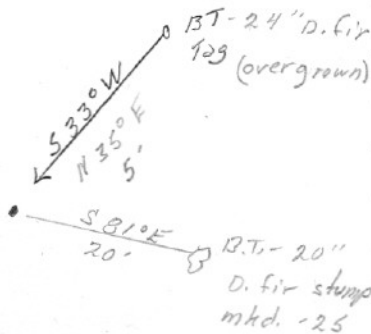 BT - 24" D. fir
Tag
(overgrown)
S 33° W
N 35° E
5'
S 81° E
20'
B.T. - 20"
D. fir stump
mkd. - 25